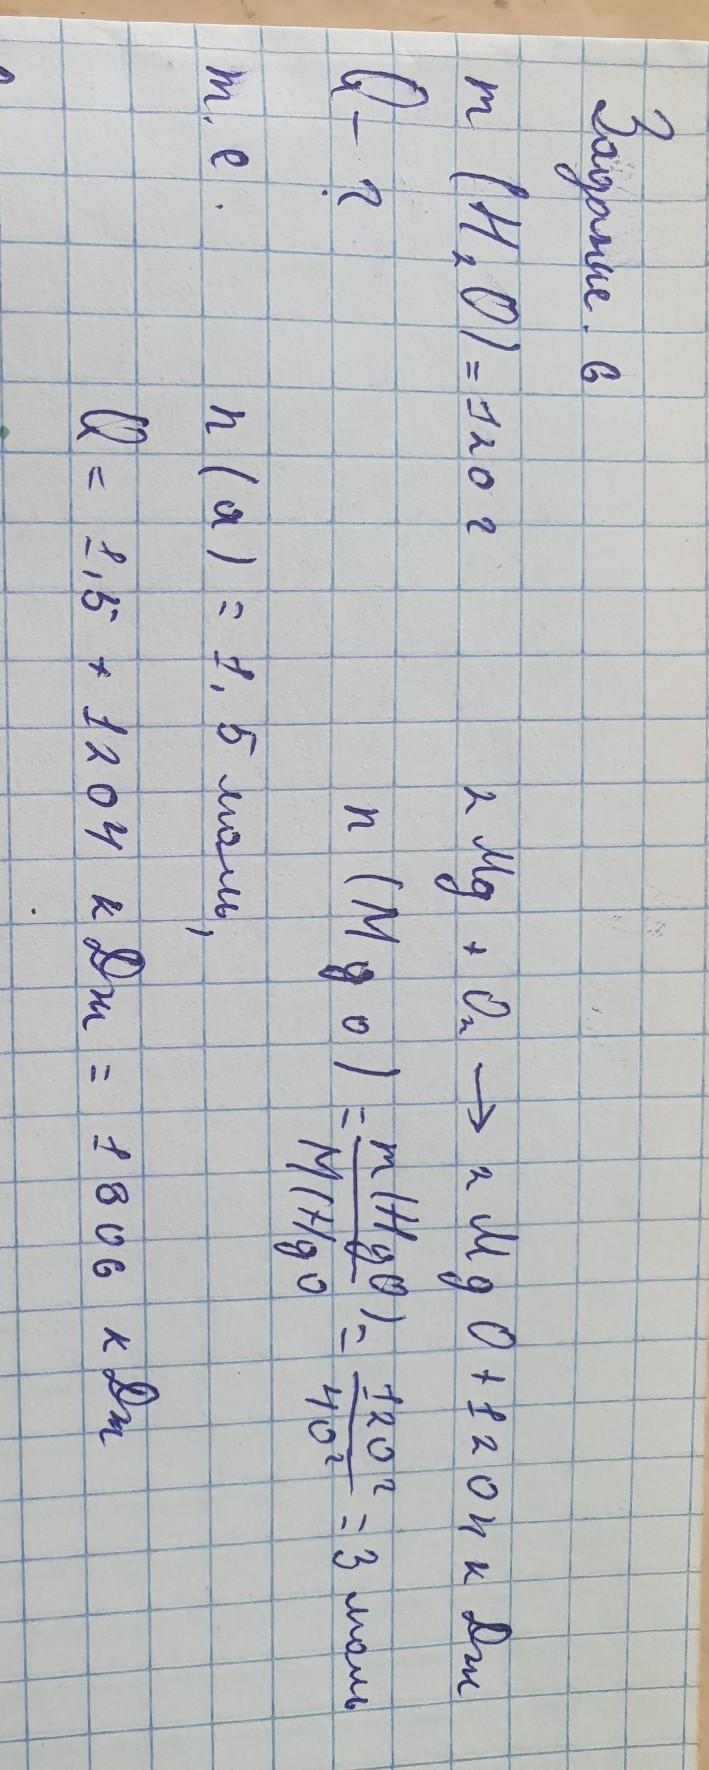 Задание. 6
m (H₂O) = 120 г 2 Mg + O₂ → 2 MgO + 1204 кДж
Q – ? n (Mgo) = m(HgO) / M(HgO = 120г / 40г = 3 моль
т.е. n(Q) = 1,5 моль,
Q = 1,5 + 1204 кДж = 1806 кДж